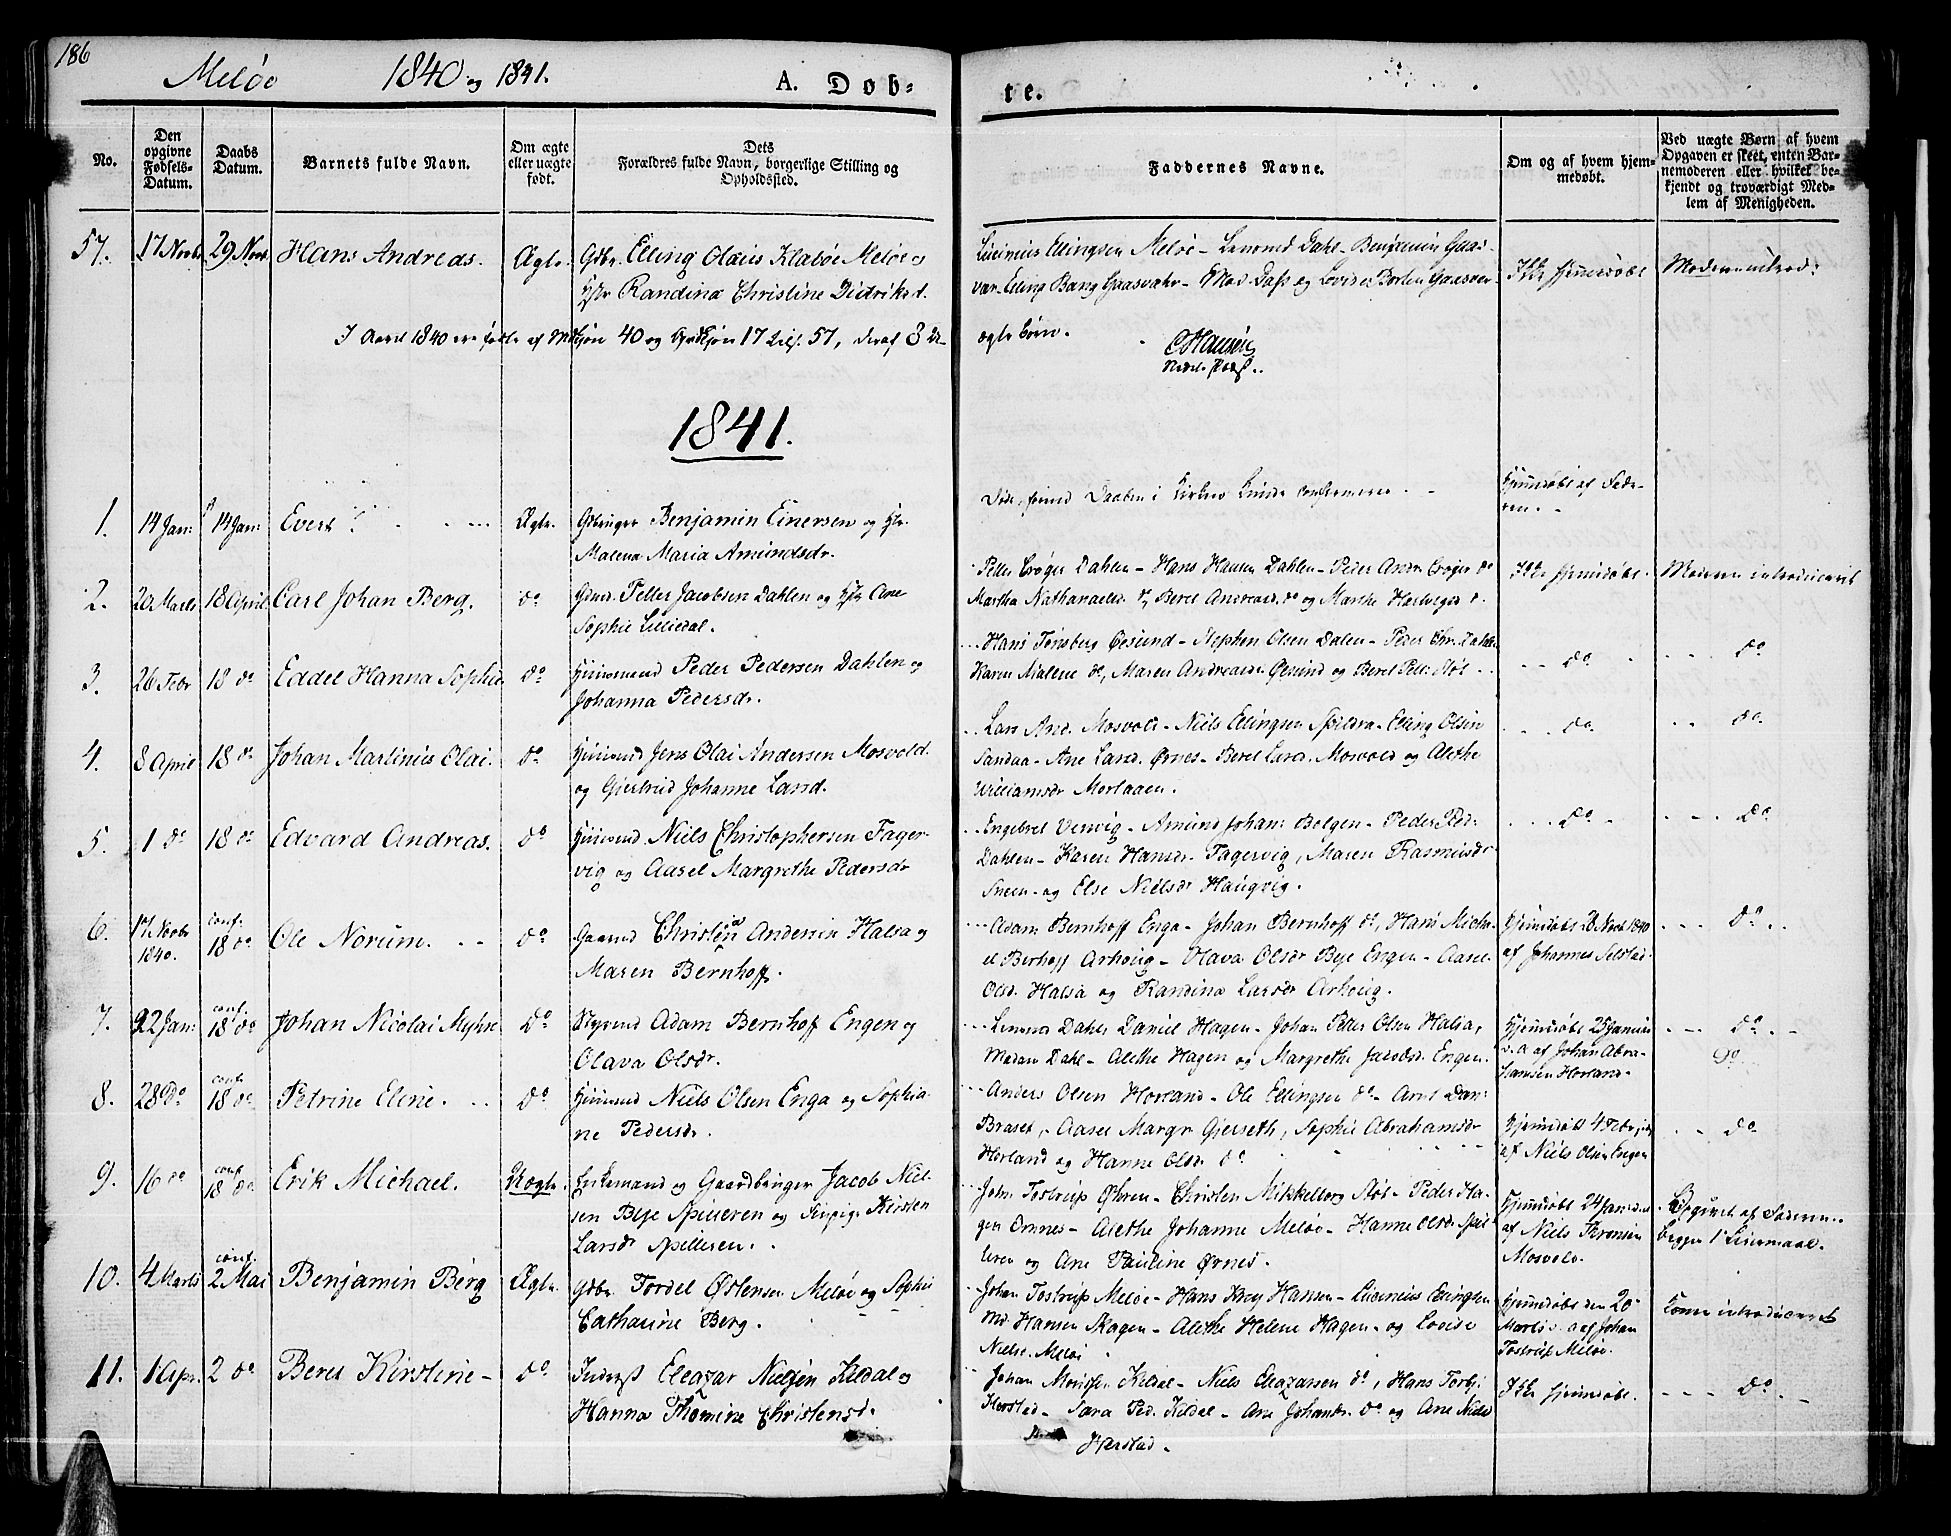 186
Meløe 1840 og 1841. A. Døb-
te.
No.
Den opgivne Fødsels-Datum.
Daabs Datum.
Barnets fulde Navn.
Om ægte eller uægte født.
Dets Forældres fulde Navn, borgerlige Stilling og Opholdssted.
Faddernes Navne.
Om og af hvem hjemmedøbt.
Ved uægte Børn af hvem Opgaven er skeet, enten Barnemoderen eller hvilket bekjendt og troværdigt Medlem af Menigheden.
57. 17 Novbr 29 Novb Hans Andreas. Ægte. Gdbr. Elling Olaus Klaboe Meløe og
Hstr Randina Christine Didriksd.
Lucinius Ellingsen Meløe - Lensmd Dahl - Benjamin Gaas-
vær - Elling Bang Gaasvær - Mad. Dass og Lovise Borten Gaasvær
Ikke hjemdøbt Moderen introd:
I Aaret 1840 ere fødte af Mdkjøn 40 og Qvdkjøn 17 Tils. 57, deraf 3 u-
ægte børn.
C Hansen
1841.
1. 14 Jan: 14 Jan: Evert Ægte. Gdbruger Benjamin Einersen og Hstr.
Malena Maria Amundsdr.
Døde, førend Daaben i Kirken kunde confirmeres. -
Hjemdøbt af Fade-
ren. -
2. 20 Marts 18 April Carl Johan Berg. do Gdmd. Petter Jacobsen Dahlen og Hstr Ane
Sophie Liliedal.
Petter Crøger Dahlen - Hans Hansen Dahlen - Peder Andr Crøger do
Martha Nathanaelsd. do, Beret Andreasd. do og Marthe Hartvigsd d.
Ikke hjemdøbt. Moderen introduceret
3. 26 Febr 18 do Eddel Hanna Sophie do Huusmand Peder Pedersen Dahlen og
Johanna Pedersdr.
Hans Tønsberg Øesund - Stephen Olsen Dalen - Peder Chr. Dahlen
Karen Malene do, Maren Andreasdr Øesund og Beret Pett. Støt -
do do
4. 8 April 18 do Johan Martinus Olai. do Huusmd Jens Olai Andersen Mosvold
og Gjertrud Johanne Larsd.
Lars And. Mosvold - Niels Ellingsen Spildra - Elling Olsen
Sandaa - Ane Larsd. Ørnes - Beret Larsd. Mosvold og Alethe
Williamsdr Mortaaen.
do. do.
5. 1 do 18 do Edvard Andreas. do Huusmd Niels Christophersen Fager-
vig og Aasel Margrethe Pedersdr
Engebret Venvig - Amund Johans Bolgen - Peder Ped:
Dahlen - Karen Hansdr. Fagervig, Maren Rasmusdr
Sneen - og Else Nielsdr Haugvig.
do - do
6. 17 Novbr 1840. conf. 18 do. Ole Norum. do Gaardmd Christen Andersen Halsa og
Maren Bernhoff.
Adam Bernhoff Enga - Johan Bernhoff do, Hans Micha-
el Berhoff Arhoug - Olava Olsdr Beje Engen - Aasel
Olsd. Halsa og Randina Larsdr Arhoug.
Hjemdøbt 28 Novb 1840
af Johannes Selstad.
do
7. 22 Jan: conf. 18 do Johan Nicolai Myhre do Styrmd Adam Bernhoff Engen og
Olava Olsdr.
Lensmd Dahl Daniel Hagen - Johan Peter Olsen Halsa,
Madam Dahl - Alethe Hagen og Margrethe Jacobsd. Engen.
Hjemdøbt 25 Januar
d. a. af Johan Abra-
hamsen Horland -
do
do.
8. 28 do conf. 18 do. Petrine Eline. do Huusmd Niels Olsen Enga og Sophia-
ne Pedersdr.
Anders Olsen Horland - Ole Ellingsen do - Arnt Dan:
Braset, - Aasel Margr. Gjerseth, Sophie Abrahamsdr
Horland og Hanne Olsdr do
Hjemdøbt 4 Febr
af Niels Olsen Engen
do
9. 16 do conf. 18 do. Erik Michael. Uægte. Enkemand og Gaardbruger Jacob Niel-
sen Beje Spilleren og Pige Kirsten
Larsdr Spilleren.
John Tostrup Øhren - Christen Mikkelborg Støt - Peder Ha-
gen Ornes - Alethe Johanne Meløe - Hanne Olsdr Spil-
leren og Ane Pauline Ørnes.
Hjemdøbt 24 Jan:
af Niels
Mosvold.
Opgivet af Faderen.
begges 1ste Leiermaal.
10. 4 Marts conf. 2 Mai Benjamin Berg Ægte. Gdbr. Tordel Østensen Meløe og Sophie
Catharine Berg.
Johan Tostrup Meløe - Hans Krey Hansen - Lucinius Ellingsen
Md. Hansen Skagen - Alethe Helene Hagen - og Lovise
Nielsd. Meløe
Hjemdøbt den 20
Marts d. a af Johan
Tostrup Meløe.
Konen introduceret
11. 1 Apr. 2 do Beret Kirstine - do Inderst Eleazar Nielsen Kildal og
Hanna Thomine Christensd.
Johan Mons. Kildal - Niels Eleazarsen do, Hans Torbj:
Horstad - Sara Ped. Kildal - Ane Johansdr. do og Ane Nielsd
Horstad.
Ikke hjemdøbt. do